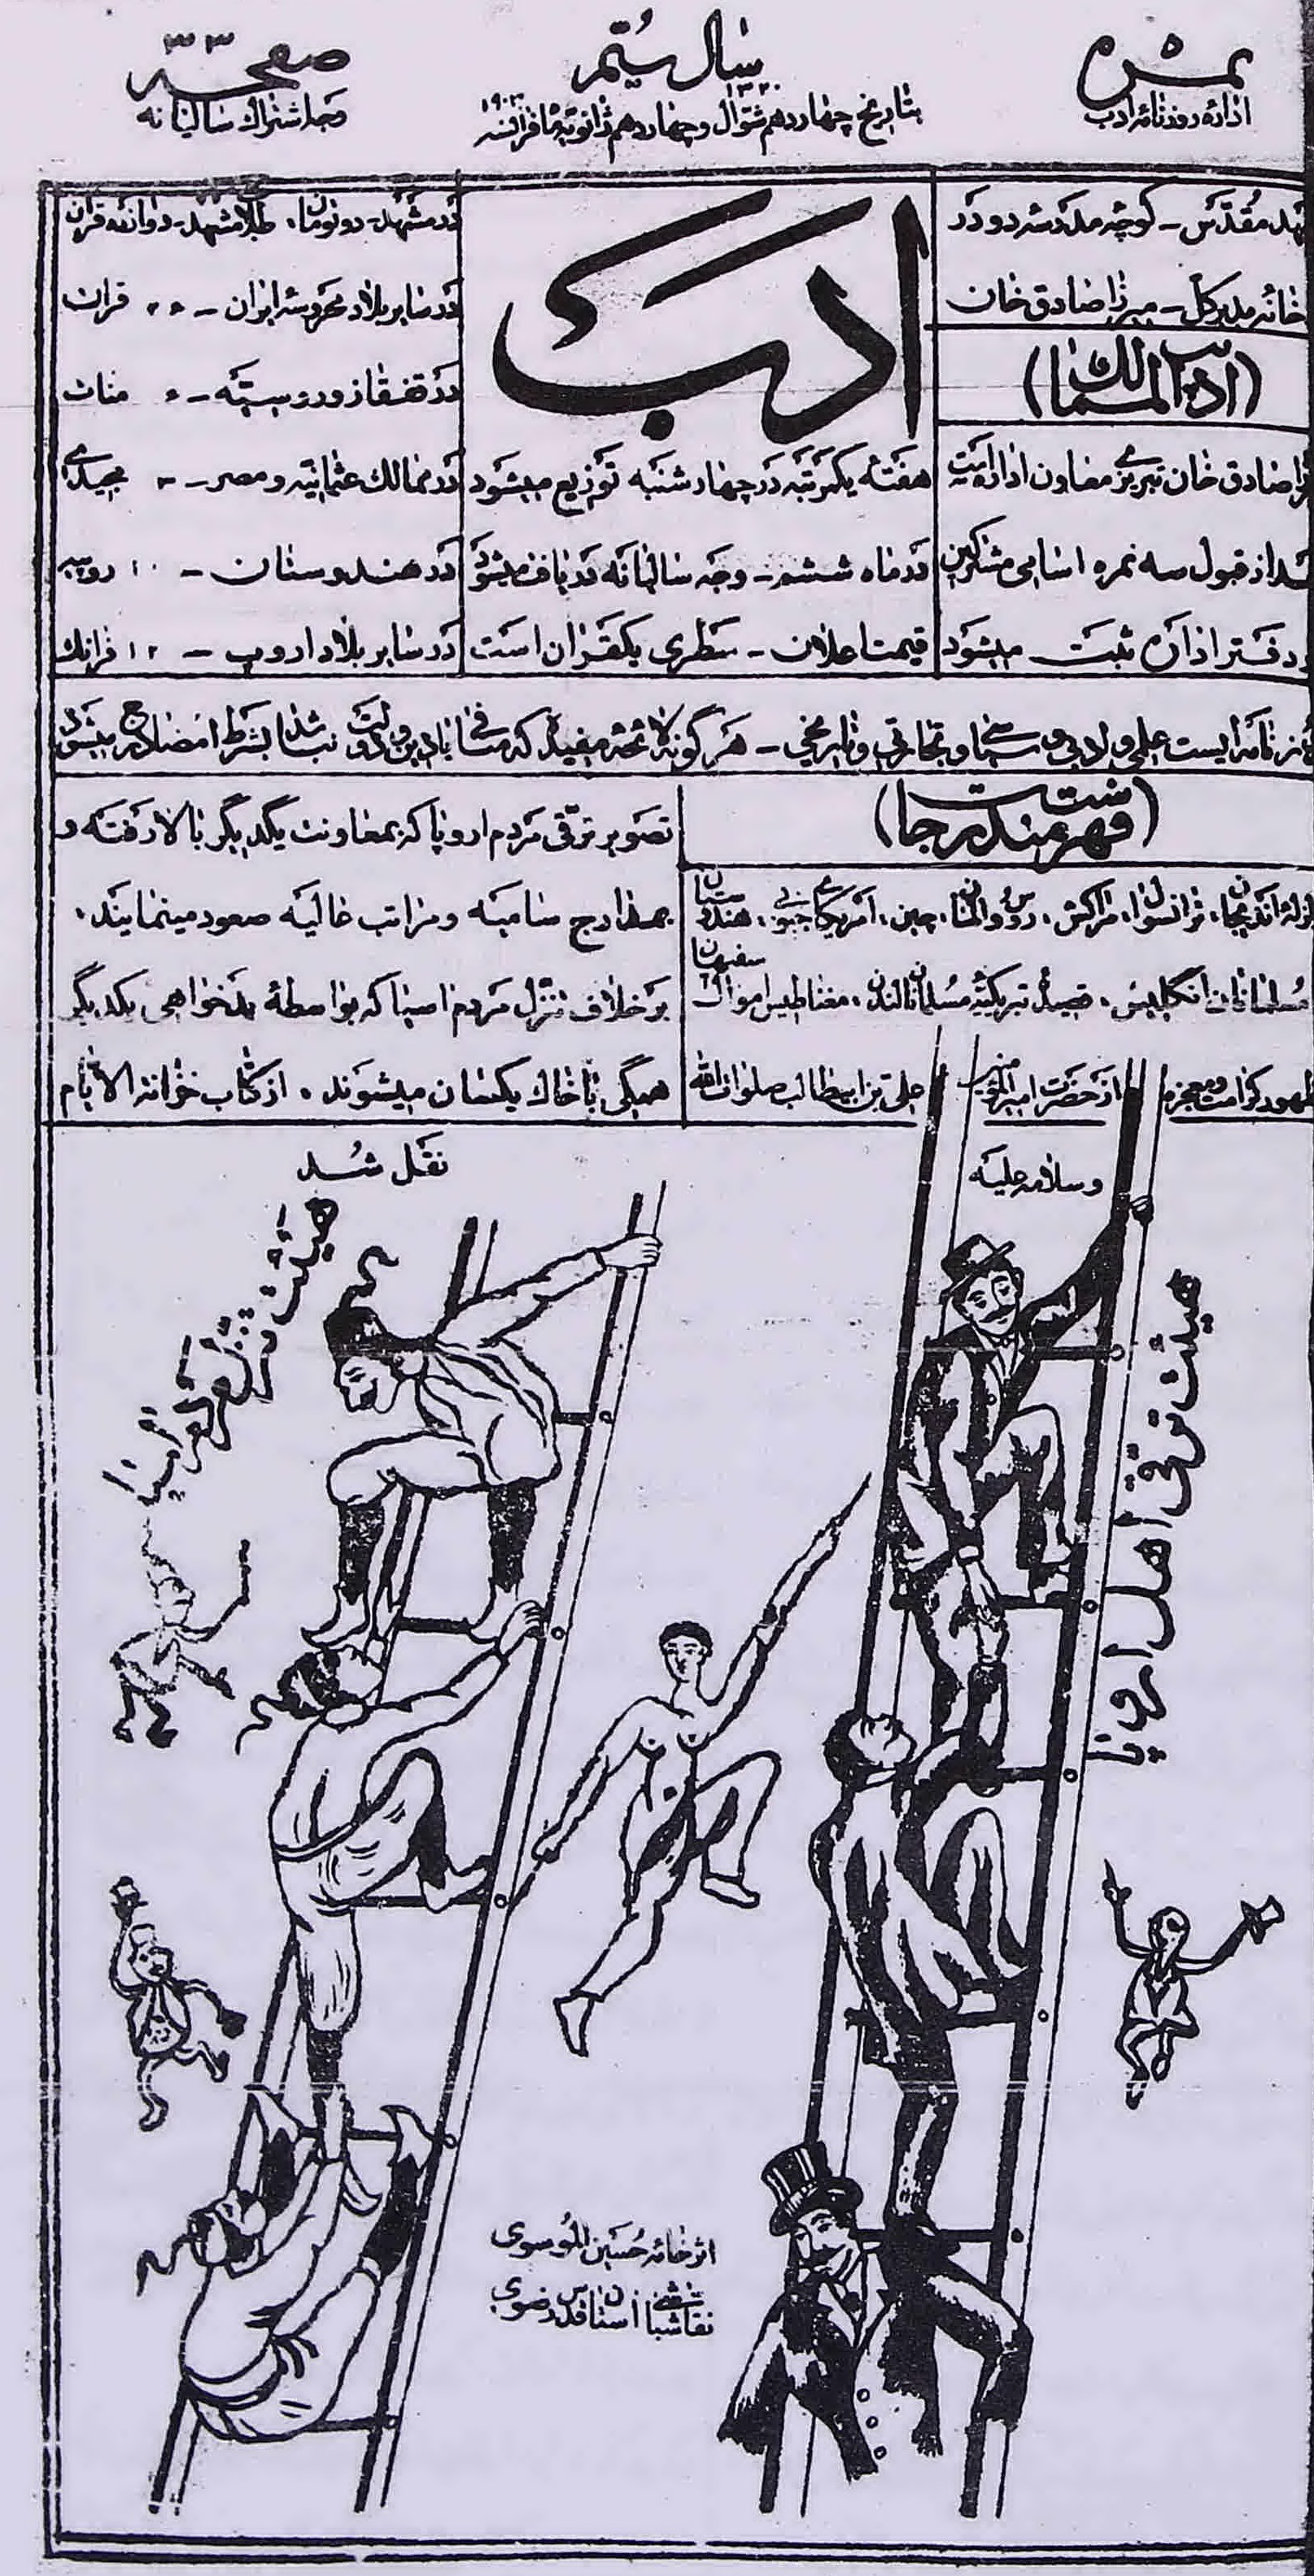 نمره ٥
ادارهٔ روزنامه ادب
سال سیّم
١٣٢٠
بتاریخ چهاردهم شوّال و چهاردهم ژانویه ماه فرانسه ١٩٠٣
صفحه ٣٣
وجه اشتراک سالیانه
مقدّس - کوچه مدرسه دو در
خانه مدیر کل - میرزا صادق خان
(ادیب الممالک)
صادق خان تبریزی معاون اداره است
از قبول سه نمره اسامی مشترکین
دفتر اداره ثبت میشود
ادب
هفتهٔ یکمرتبه در چهارشنبه توزیع میشود
در ماه ششم - وجه سالیانه دریافت میشود
قیمت اعلان - سطری یکقران است
در مشهد - دو تومان، طلاب مشهد - دوازده قران
در سایر بلاد محروسه ایران - ٢٥ قران
در قفقاز و روسیه - ٥ منات
در ممالک عثمانیه و مصر - ٣ مجیدی
در هندوستان - ١٠ روپیه
در سایر بلاد اروپ - ١٢ فرانک
نامه ایست علمی و ادبی و سیاسی و تجارتی و تاریخی - هر گونه لایحهٔ مفیده که منافی با دین و دولت نباشد بشرط امضا درج میشود
(فهرست مندرجات)
اندیجان، ترانسوال، مراکش، روس و آلمان، چین، آمریکای جنوبی، هندوستان
مسلمانان انگلیس، قصیدهٔ تبریکیّه مسلمانان لندن، مغناطیس اموال سفیهان
کرامت و معجزه از حضرت امیرالمؤمنین علی بن ابیطالب صلوات الله
و سلامه علیه
تصویر ترقی مردم اروپا که بمعاونت یکدیگر بالا رفته و
بمدارج سامیه و مراتب عالیه صعود مینمایند،
بر خلاف تنزّل مردم آسیا که بواسطهٔ بدخواهی یکدیگر
همگی با خاک یکسان میشوند، از کتاب خزانة الایام
نقل شد
هیئت ترقی اهل اروپا
هیئت تنزل اهل آسیا
اثر خامه حسین الموسوی
نقاشباشی آستان قدس رضوی